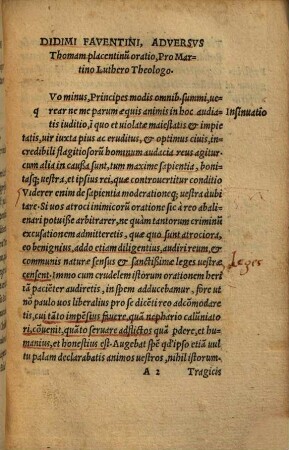 DIDIMI FAVENTINI, ADVERSVS
Thomam placentinū oratio, Pro Mar-
tino Luthero Theologo.
Vo minus, Principes modis omnib. summi, ue-
q rear ne me parum æquis animis in hoc audia- Insinuatio
tis iuditio, ī quo et uiolatæ maiestatis & impie
tatis, uir iuxta pius ac eruditus, & optimus ciuis, in-
credibili flagitiosorū hominum audacia reus agitur
cum alia in caussa sunt, tum maxime sapientia, bonitasq;
uestra, et ipsius rei, quæ in controuertitur conditio
Viderer enim de sapientia moderationeq; uestra dubitare
Si uos atroci inimicorū oratione ab eo reo abali-
enari potuisse arbitrarer, ne quàm tantorum criminū
excusationem admitteretis, quæ quo sunt atrociora,
eo benignius, addo etiam diligentius, audiri reum, &
communis naturæ sensus & sanctissimæ leges uestræ leges
censent. Immo cum crudelem istorum orationem heri
tā paciēter audiretis, in spem adducebamur, fore ut
nō paulo uos liberalius pro se dicēti reo adcōmodare-
tis, cui tāto impēsius fauere, quā nephario calūniato
ri, cōuenit, quāto seruare adflictos quā pdere, et hu-
manius, et honestius est. Augebat spē qd' ipso etiā uul
tu palam declarabatis animos uestros, nihil istorum
A 2 Tragicis